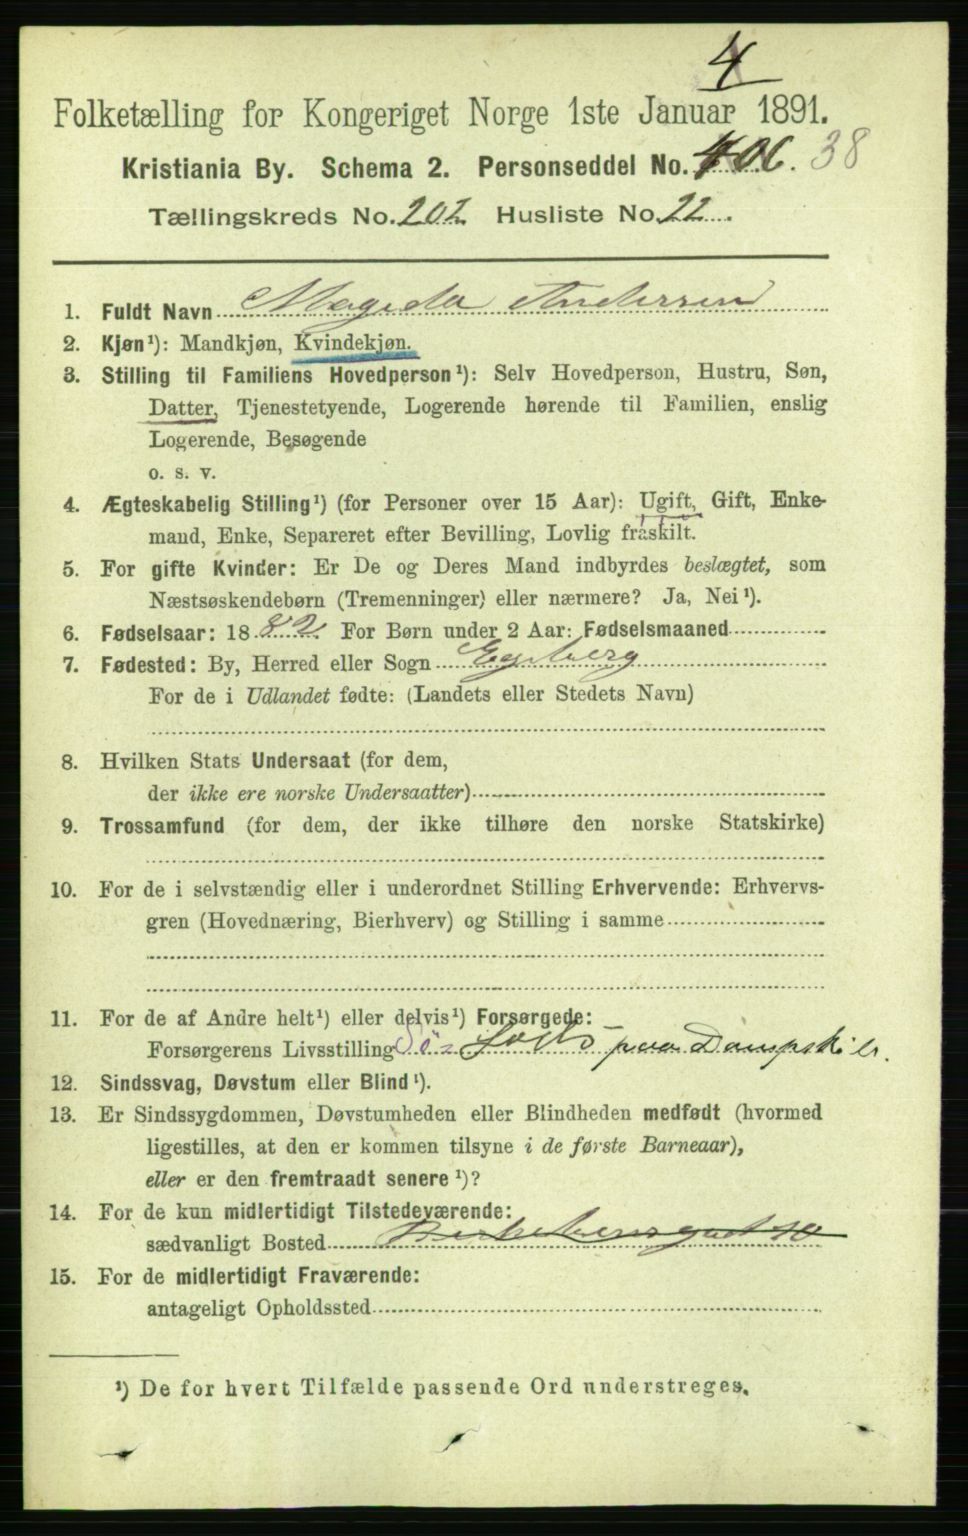 4
Folketælling for Kongeriget Norge 1ste Januar 1891.
Kristiania By. Schema 2. Personseddel No. 406. 38
Tællingskreds No. 202 Husliste No. 22.
1. Fuldt Navn Magda Andersen
2. Kjøn¹): Mandkjøn, Kvindekjøn.
3. Stilling til Familiens Hovedperson¹): Selv Hovedperson, Hustru, Søn,
Datter, Tjenestetyende, Logerende hørende til Familien, enslig
Logerende, Besøgende
o. s. v.
4. Ægteskabelig Stilling¹) (for Personer over 15 Aar): Ugift, Gift, Enke-
mand, Enke, Separeret efter Bevilling, Lovlig fraskilt.
5. For gifte Kvinder: Er De og Deres Mand indbyrdes beslægtet, som
Næstsøskendebørn (Tremenninger) eller nærmere? Ja, Nei¹).
6. Fødselsaar: 1882. For Børn under 2 Aar: Fødselsmaaned
7. Fødested: By, Herred eller Sogn Egeberg
For de i Udlandet fødte: (Landets eller Stedets Navn)
8. Hvilken Stats Undersaat (for dem,
der ikke ere norske Undersaatter)
9. Trossamfund (for dem, der ikke tilhøre den norske Statskirke)
10. For de i selvstændig eller i underordnet Stilling Erhvervende: Erhvervs-
gren (Hovednæring, Bierhverv) og Stilling i samme
11. For de af Andre helt¹) eller delvis¹) Forsørgede:
Forsørgerens Livsstilling Lods paa Dampski er.
12. Sindssvag, Døvstum eller Blind¹).
13. Er Sindssygdommen, Døvstumheden eller Blindheden medfødt (hvormed
ligestilles, at den er kommen tilsyne i de første Barneaar),
eller er den fremtraadt senere¹)?
14. For de kun midlertidigt Tilstedeværende:
sædvanligt Bosted
15. For de midlertidigt Fraværende:
antageligt Opholdssted
¹) De for hvert Tilfælde passende Ord understreges.